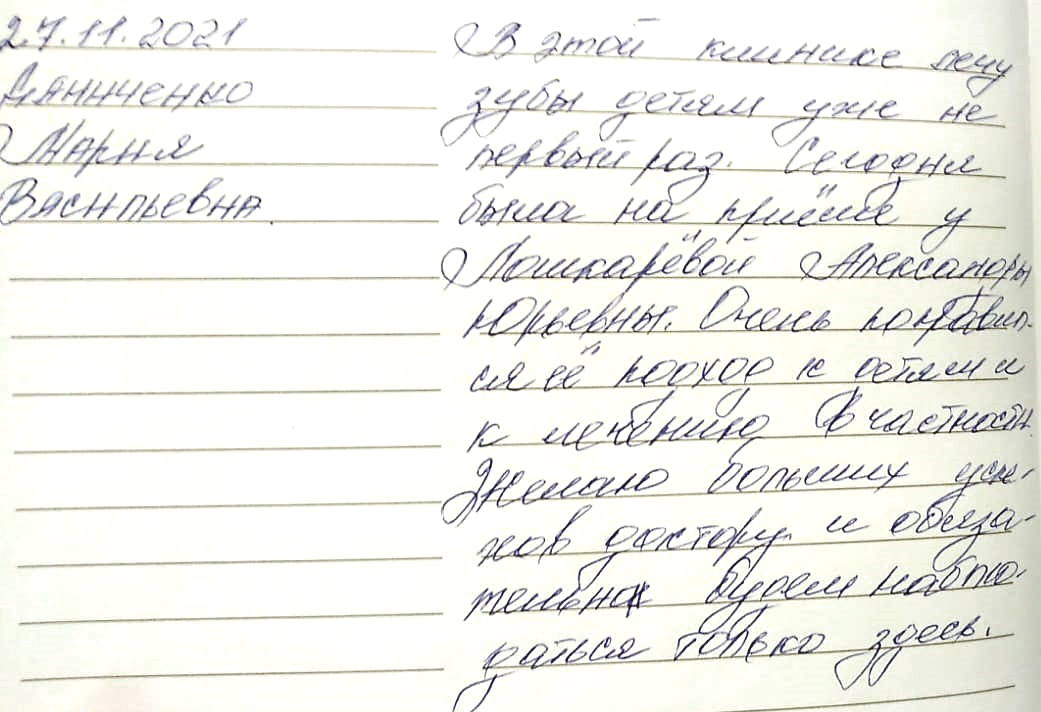 27.11.2021
Мария
Васильевна
В этой клинике лечу
зубы детям уже не
первый раз. Сегодня
была на приёме у
Лошкарёвой Александры
Юрьевны. Очень понравил-
ся её подход к детям и
к лечению в частности.
Желаю больших успе-
хов доктору и обяза-
тельно будем наблю-
даться только здесь.